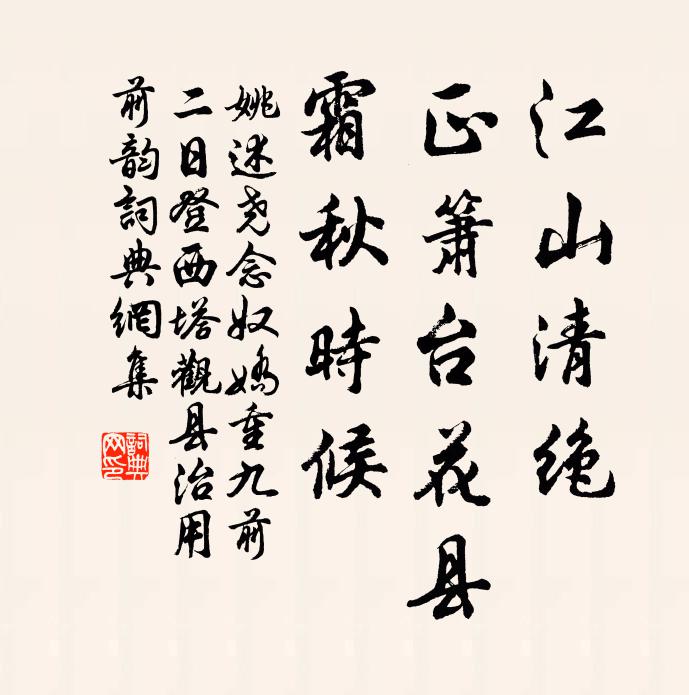 江山清绝
正箫台花县
霜秋時候
姚述尧念奴嬌重九前
二日登西塔觀县治用
前韵詞典網集
詞典
网印